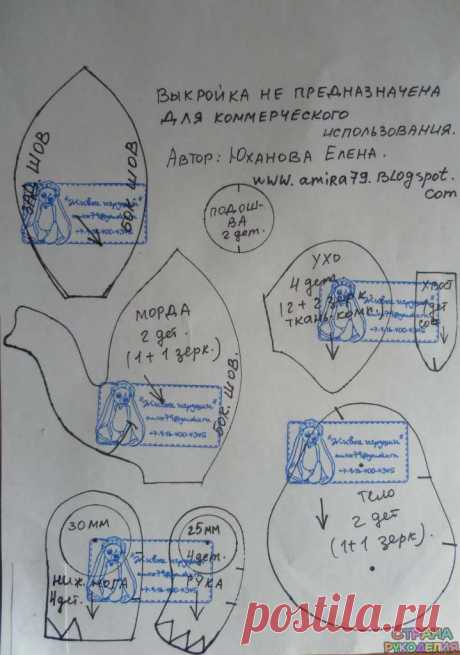 ВЫКРОЙКА НЕ ПРЕДНАЗНАЧЕНА
ДЛЯ КОММЕРЧЕСКОГО
ИСПОЛЬЗОВАНИЯ.
АВТОР: ЮХАНОВА ЕЛЕНА.
www.amira79.Blogspot.
com
ЗАД ШОВ
БОК. ШОВ
"Живые игрушки"
ПОДОШ-
ВА
2 дет.
УХО
4 дет.
(2+2 зерк.
ткань комп.)
ХВОСТ
МОРДА
2 дет.
(1+1 зерк.)
БОК. ШОВ.
"Живые игрушки"
"Живые игрушки"
ТЕЛО
2 дет
(1+1 зерк.)
30 ММ
НИЖ. НОГА
4 дет.
25 ММ
4 дет.
РУКА
postila.ru
СТРАНА
РУКОДЕЛИЯ